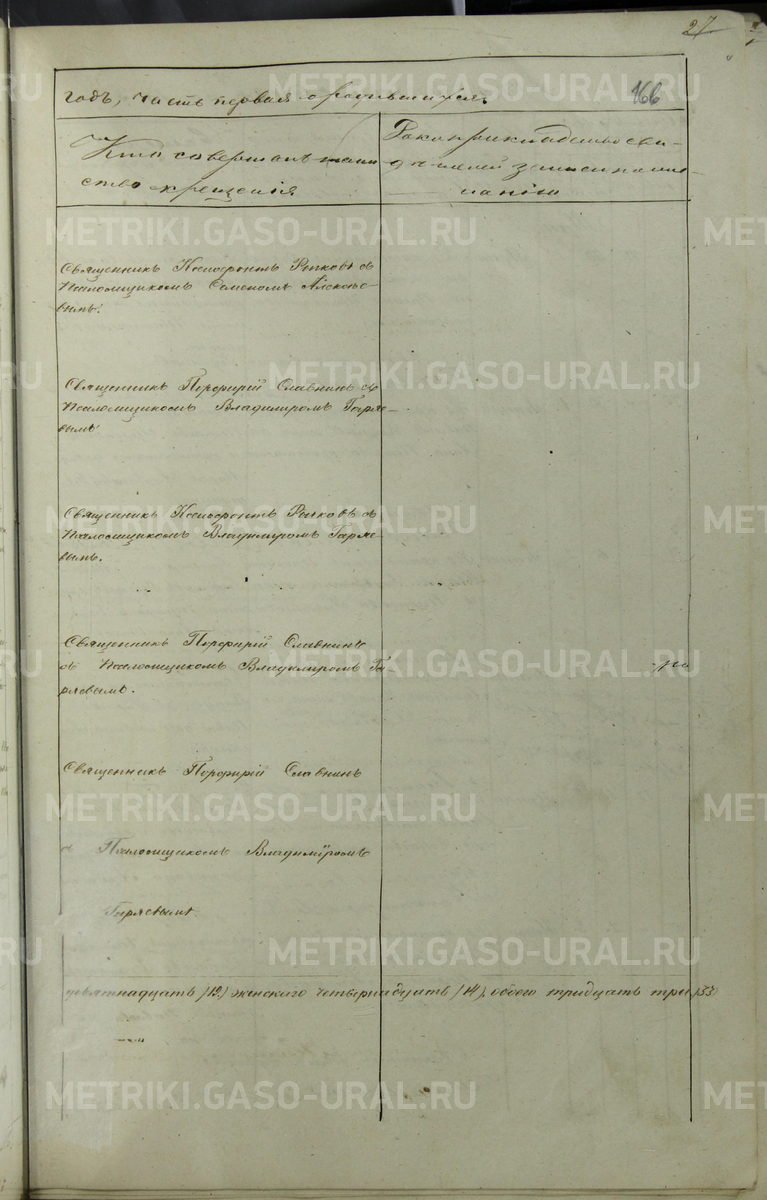 27
годъ, часть первая о родившихся.
166
Кто совершалъ таин
ство крещенія
Рукоприкладство сви-
дѣтелей записи по же-
ланію
Священникъ Ксенофонтъ Рычковъ съ
Псаломщикомъ Семеномъ
вымъ.
Священникъ Порфирій Славнинъ съ
Псаломщикомъ Владиміромъ Гаряе-
вымъ
Священникъ Ксенофонтъ Рычковъ съ
Псаломщикомъ Владиміромъ Гаряе-
вымъ.
Священникъ Порфирій Славнинъ
съ Псаломщикомъ Владиміромъ Га
ряевымъ.
Священникъ Порфирій Славнинъ
съ Псаломщикомъ Владиміромъ
Гаряевымъ.
девятнадцать (19) женскаго четырнадцать (14), обоего тридцать три (33
METRIKI.GASO-URAL.RU